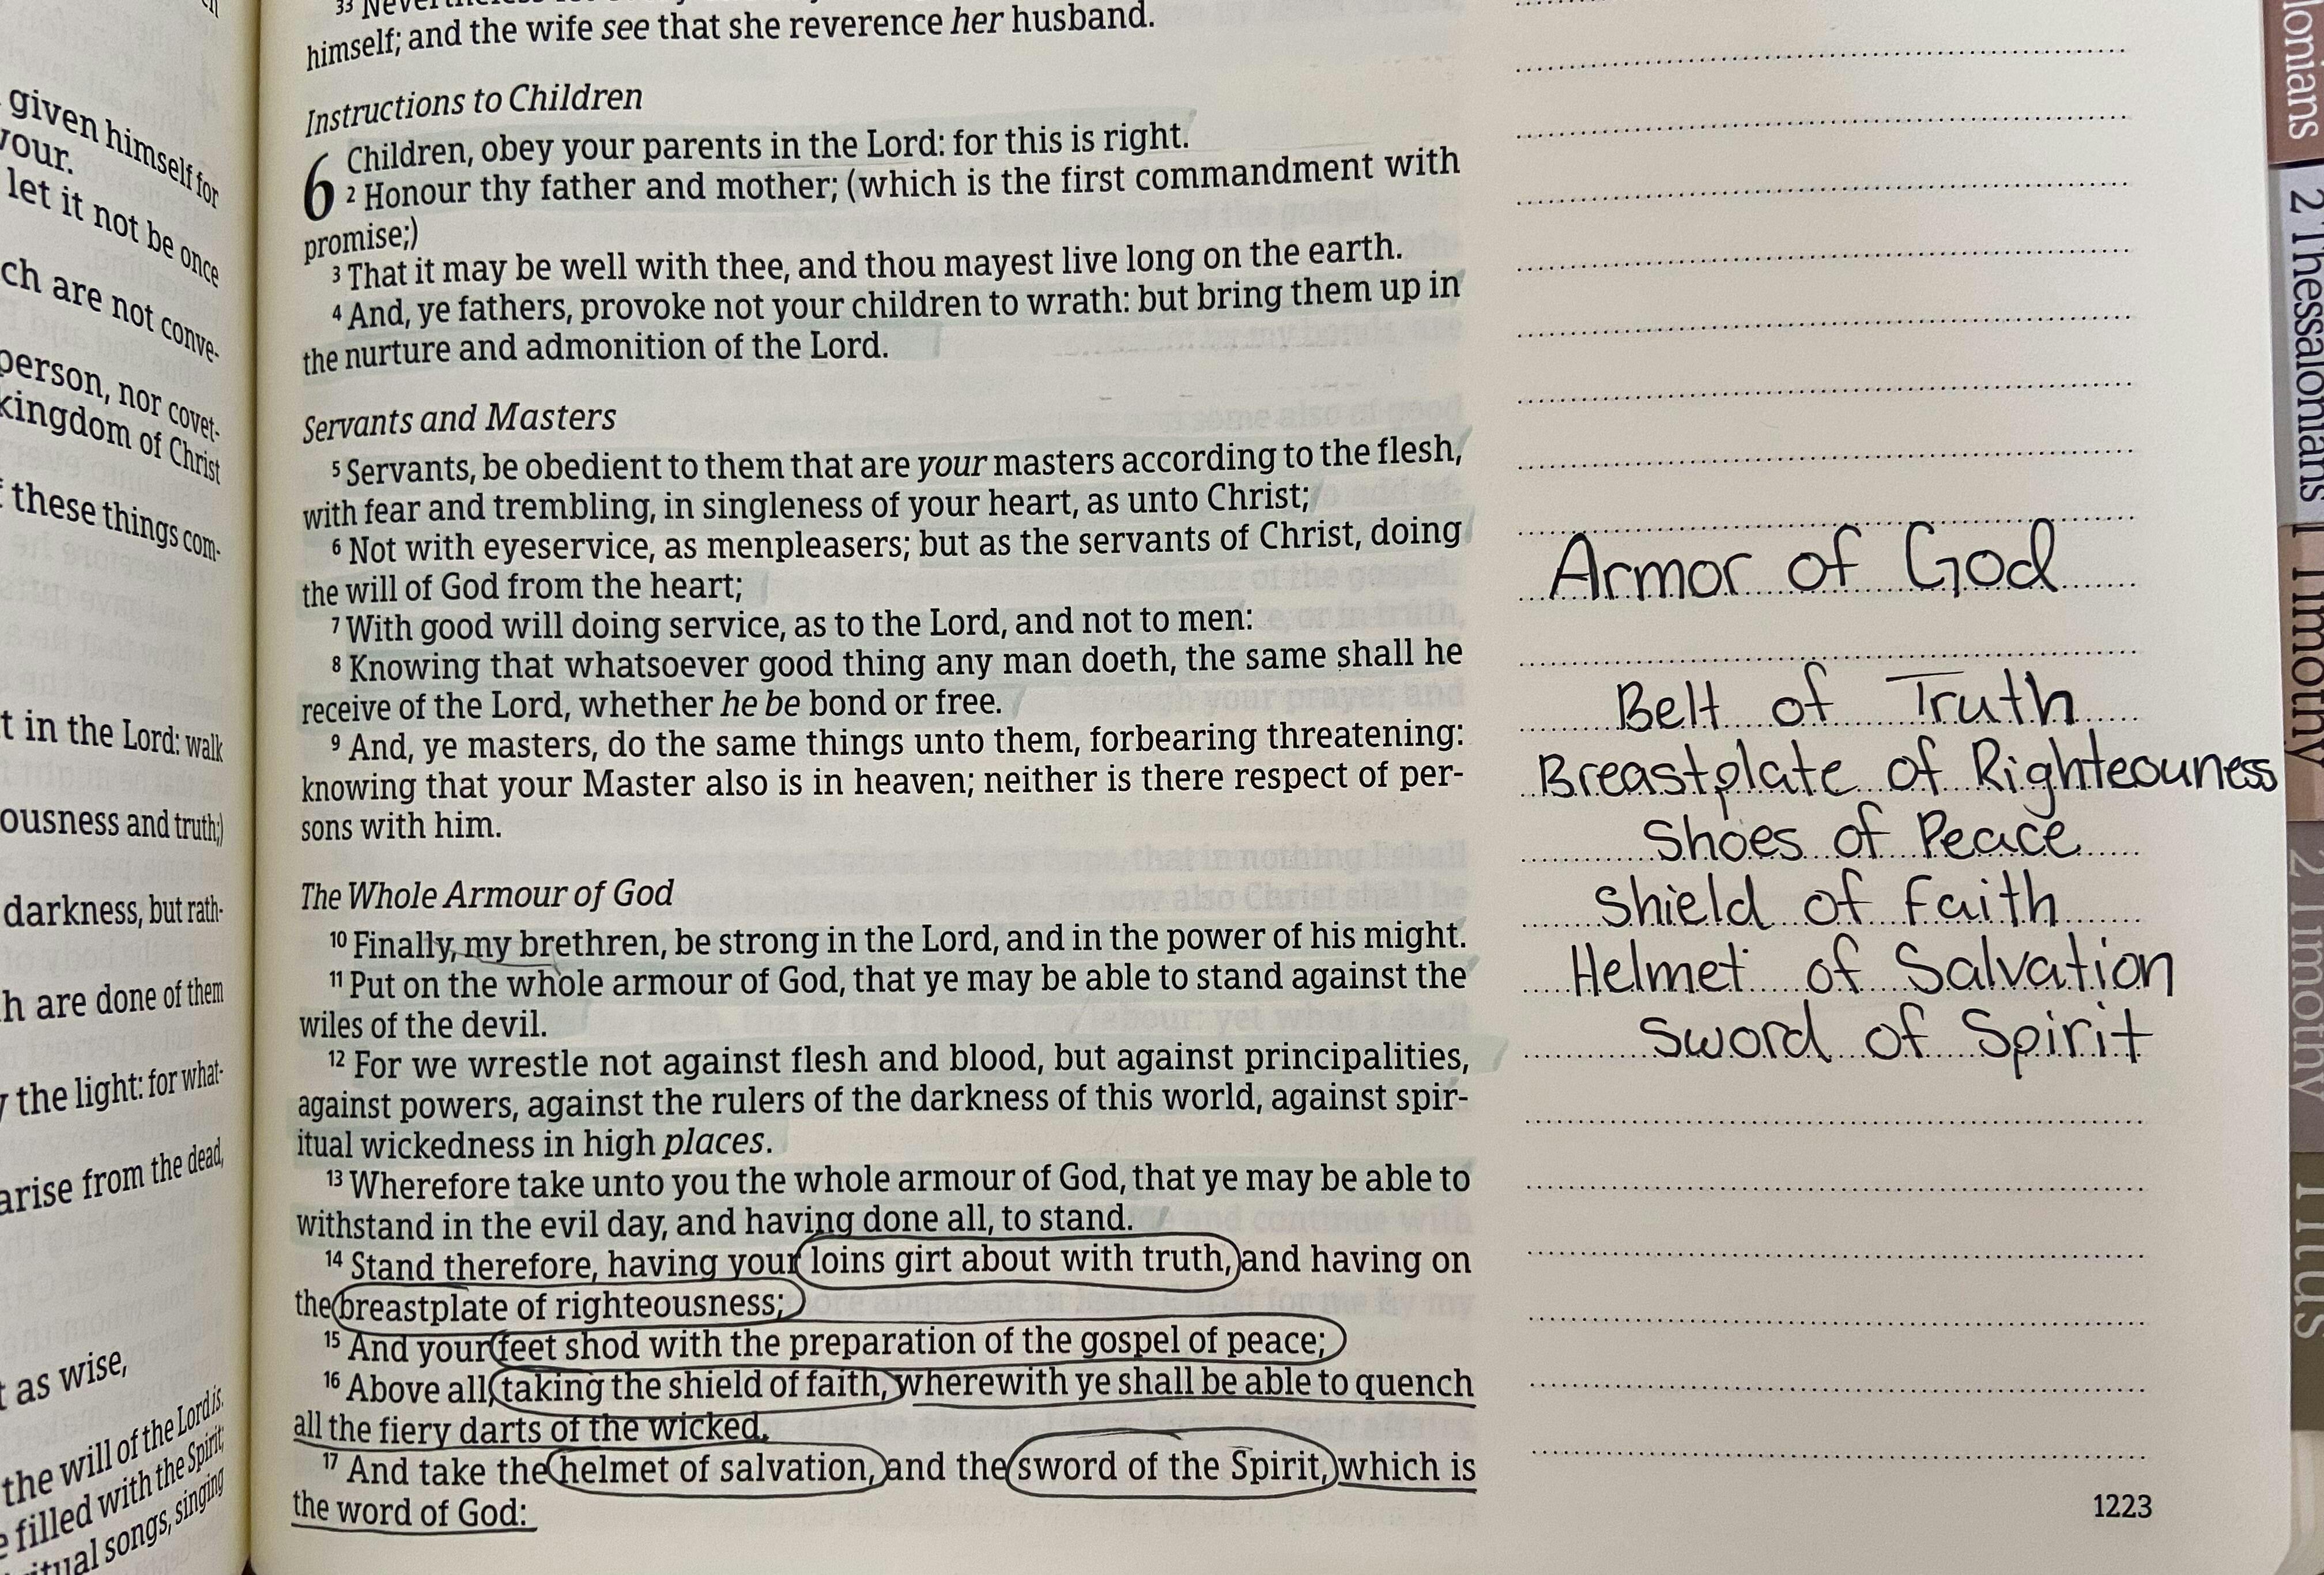 given himself for
your.
let it not be once
ch are not conve-
person, nor covet-
kingdom of Christ
these things com-
t in the Lord: walk
ousness and truth;)
darkness, but rath-
h are done of them
the light: for what-
arise from the dead,
as wise,
the will of the Lord is.
filled with the Spirit;
ritual songs, singing
himself; and the wife see that she reverence her husband.
Instructions to Children
6 Children, obey your parents in the Lord: for this is right.
2 Honour thy father and mother; (which is the first commandment with
promise;)
3 That it may be well with thee, and thou mayest live long on the earth.
4 And, ye fathers, provoke not your children to wrath: but bring them up in
the nurture and admonition of the Lord.
Servants and Masters
5 Servants, be obedient to them that are your masters according to the flesh,
with fear and trembling, in singleness of your heart, as unto Christ;
6 Not with eyeservice, as menpleasers; but as the servants of Christ, doing
the will of God from the heart;
7 With good will doing service, as to the Lord, and not to men:
8 Knowing that whatsoever good thing any man doeth, the same shall he
receive of the Lord, whether he be bond or free.
9 And, ye masters, do the same things unto them, forbearing threatening:
knowing that your Master also is in heaven; neither is there respect of per-
sons with him.
The Whole Armour of God
10 Finally, my brethren, be strong in the Lord, and in the power of his might.
11 Put on the whole armour of God, that ye may be able to stand against the
wiles of the devil.
12 For we wrestle not against flesh and blood, but against principalities,
against powers, against the rulers of the darkness of this world, against spir-
itual wickedness in high places.
13 Wherefore take unto you the whole armour of God, that ye may be able to
withstand in the evil day, and having done all, to stand.
14 Stand therefore, having your loins girt about with truth, and having on
the breastplate of righteousness;
15 And your feet shod with the preparation of the gospel of peace;
16 Above all, taking the shield of faith, wherewith ye shall be able to quench
all the fiery darts of the wicked.
17 And take the helmet of salvation, and the sword of the Spirit, which is
the word of God:
Armor of God
Belt of Truth
Breastplate of Righteouness
Shoes of Peace
Shield of Faith
Helmet of Salvation
Sword of Spirit
1223
lonians
2 Thessalonians
1 Timothy
2 Timothy
Titus